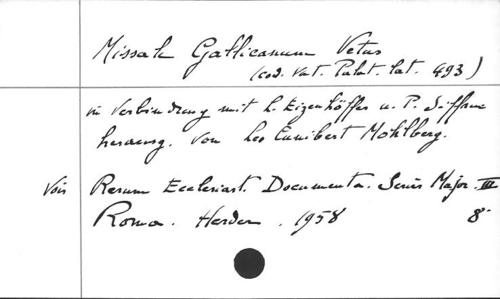 Missale Gallicanum Vetus
(cod. Vat. Palat. lat. 493)
in Verbindung mit L. Eizenhöffer u. P. Siffrin
herausg. von Leo Cunibert Mohlberg.
Voir Rerum Ecclesiast. Documenta. Series Major. III
Roma. Herder. 1958 8°